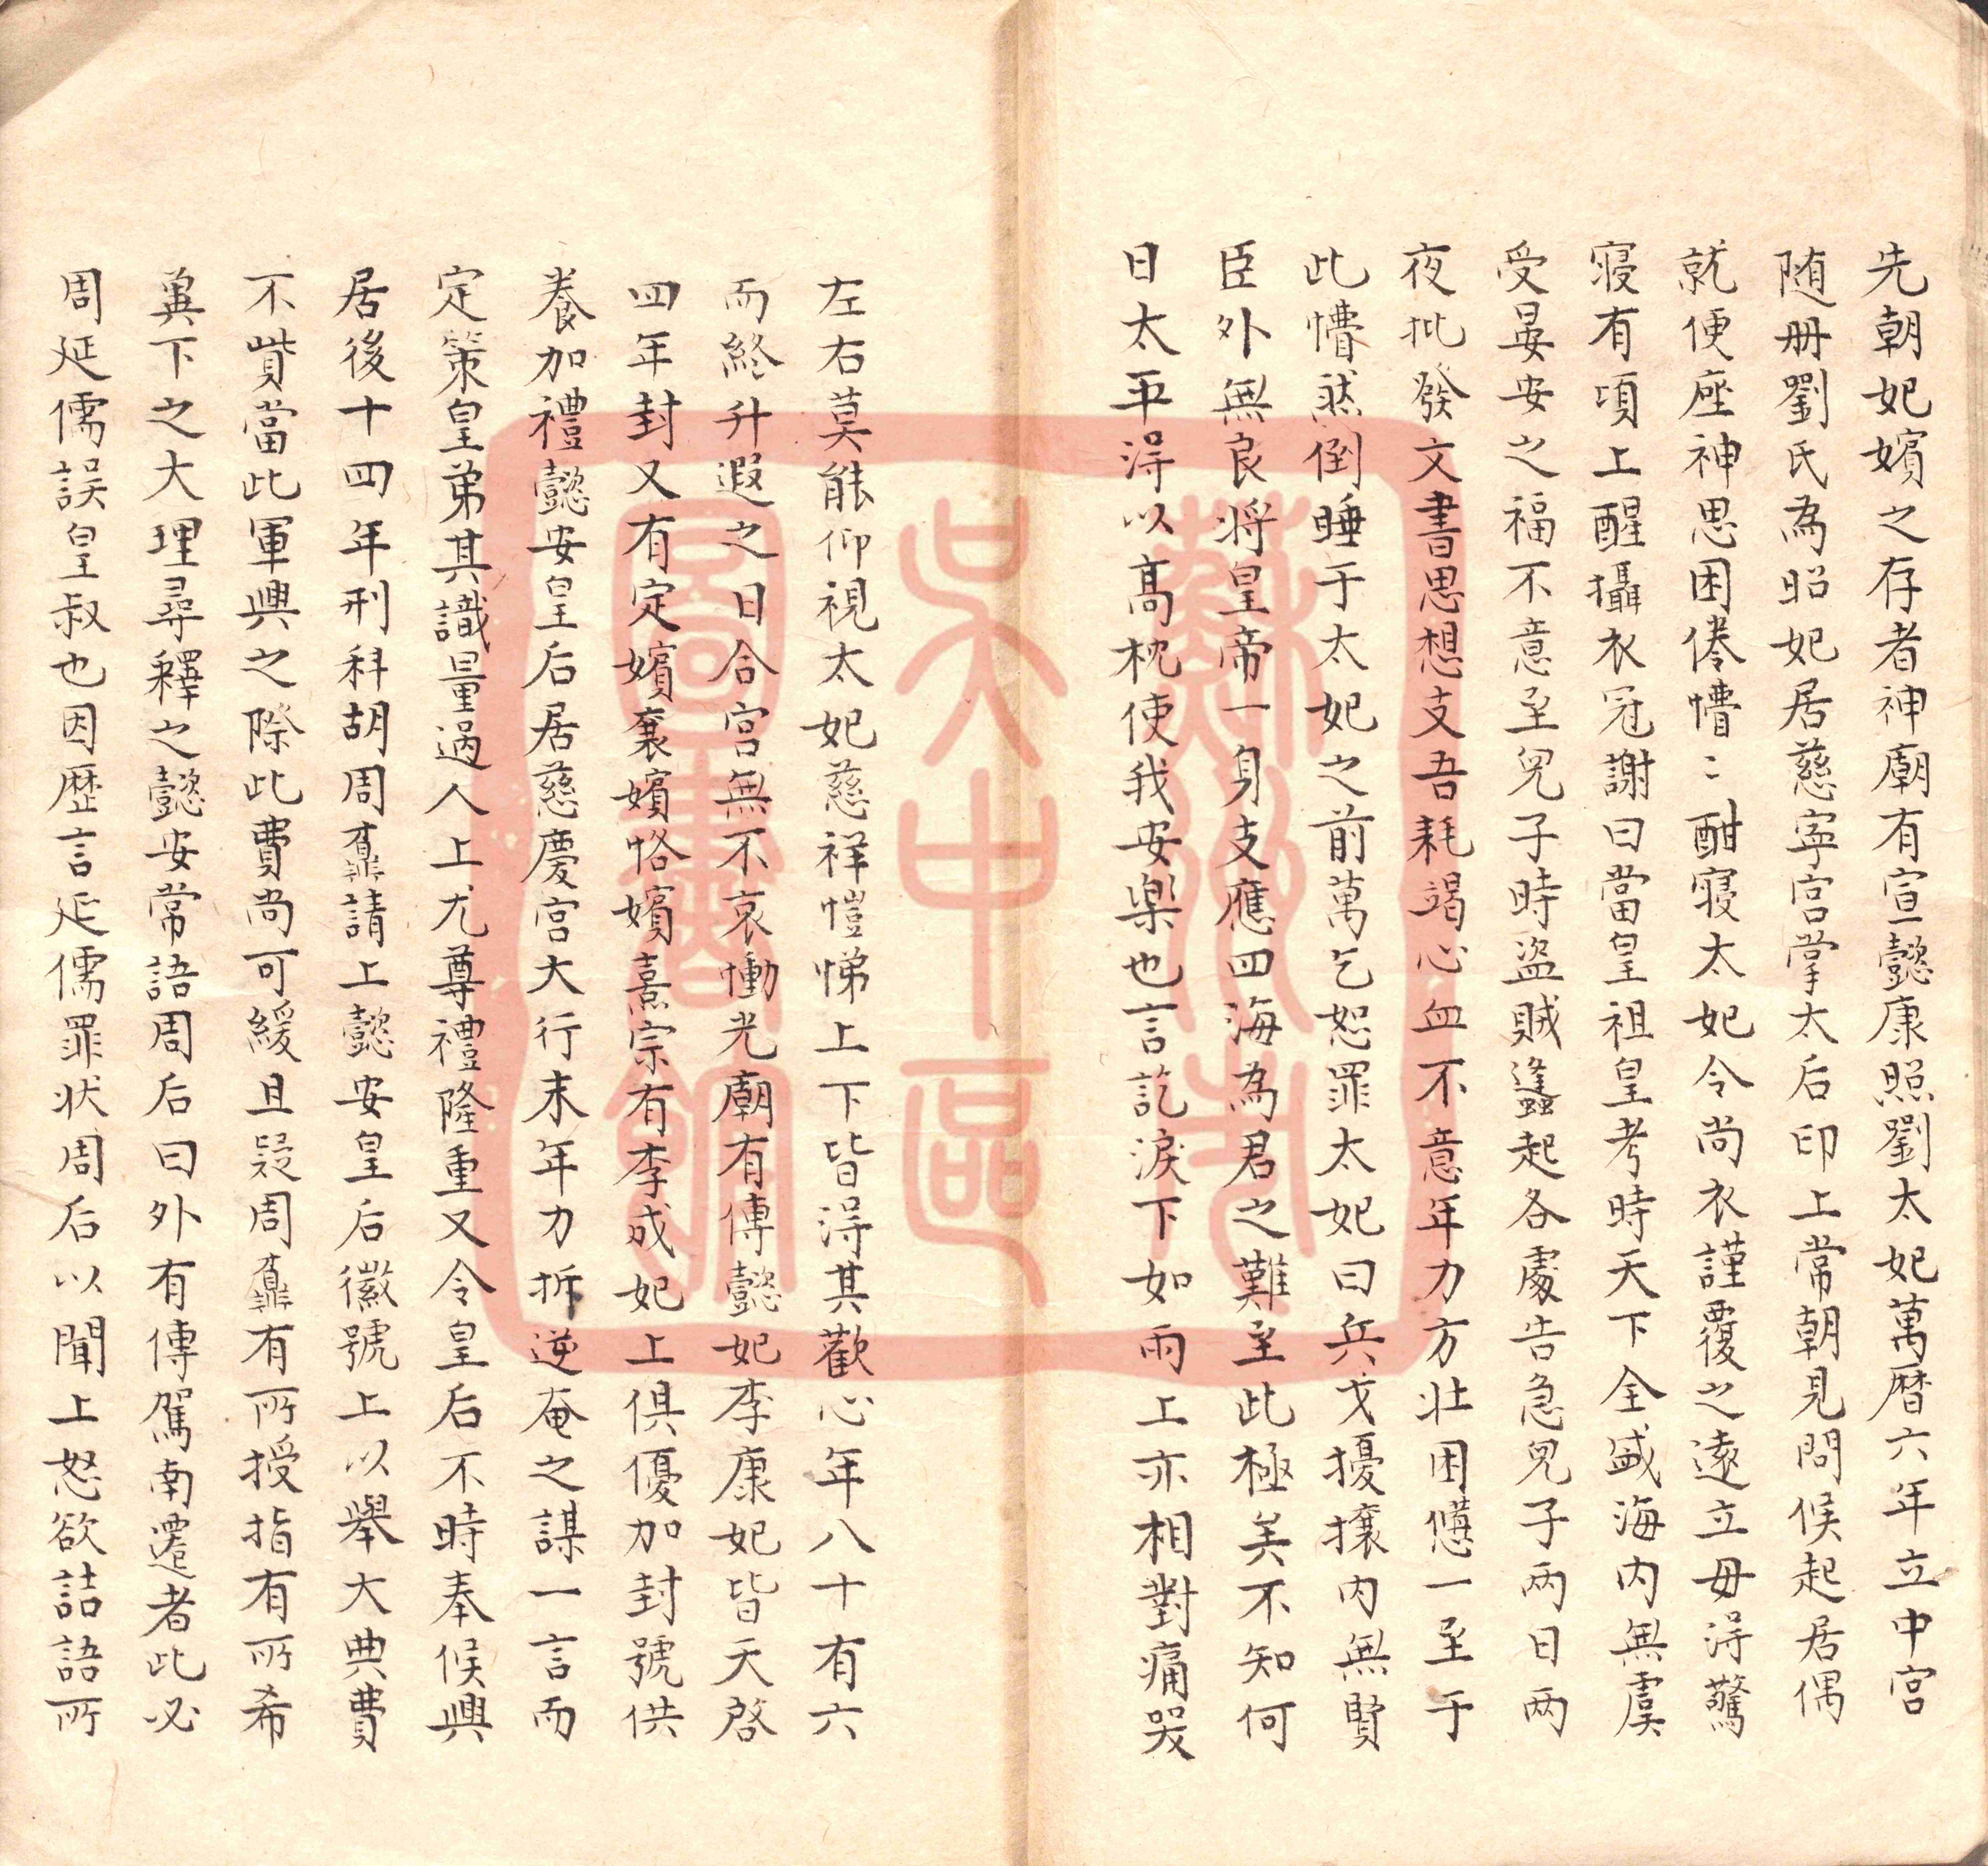 先朝妃嬪之存者神廟有宣懿康照劉太妃萬曆六年立中宮
随册劉氏為昭妃居慈寕宮掌太后印上常朝見問候起居偶
就便座神思困倦懵〻酣寝太妃令尚衣謹覆之遠立毋淂驚
寝有頃上醒攝衣冠謝曰當皇祖皇考時天下全盛海内無虞
受晏安之福不意至兒子時盜賊蠭起各處告急兒子兩日兩
夜批發文書思想支吾耗竭心血不意年力方壮困憊一至于
此懵然倒睡于太妃之前萬乞恕罪太妃曰兵戈擾攘内無賢
臣外無良将皇帝一身支應四海為君之難至此極矣不知何
日太平淂以高枕使我安樂也言訖淚下如雨上亦相對痛哭
左右莫能仰視太妃慈祥愷悌上下皆淂其歡心年八十有六
而終升遐之日合宮無不哀慟光廟有傅懿妃李康妃皆天啓
四年封又有定嬪襄嬪恪嬪熹宗有李成妃上俱優加封號供
養加禮懿安皇后居慈慶宮大行末年力拆逆奄之謀一言而
定策皇弟其識量過人上尤尊禮隆重又令皇后不時奉候興
居後十四年刑科胡周鼒請上懿安皇后徽號上以舉大典費
不貲當此軍興之際此費尚可緩且疑周鼒有所授指有所希
兾下之大理尋釋之懿安常語周后曰外有傳駕南遷者此必
周延儒誤皇叔也因歷言延儒罪状周后以聞上怒欲詰語所
蘇州市
吳中區
圖書館